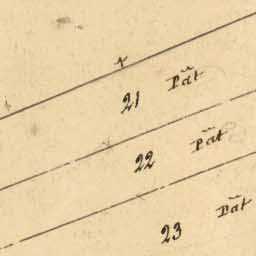 21 Pät
22 Pät
23 Pät